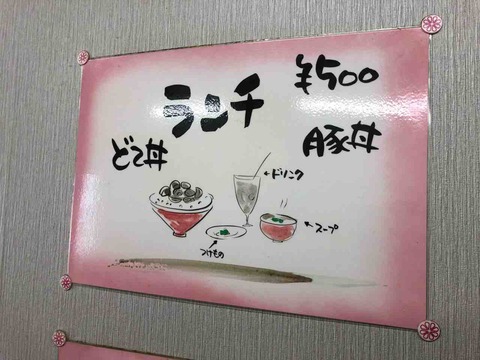 ランチ
¥500
どて丼
豚丼
ドリンク
スープ
つけもの